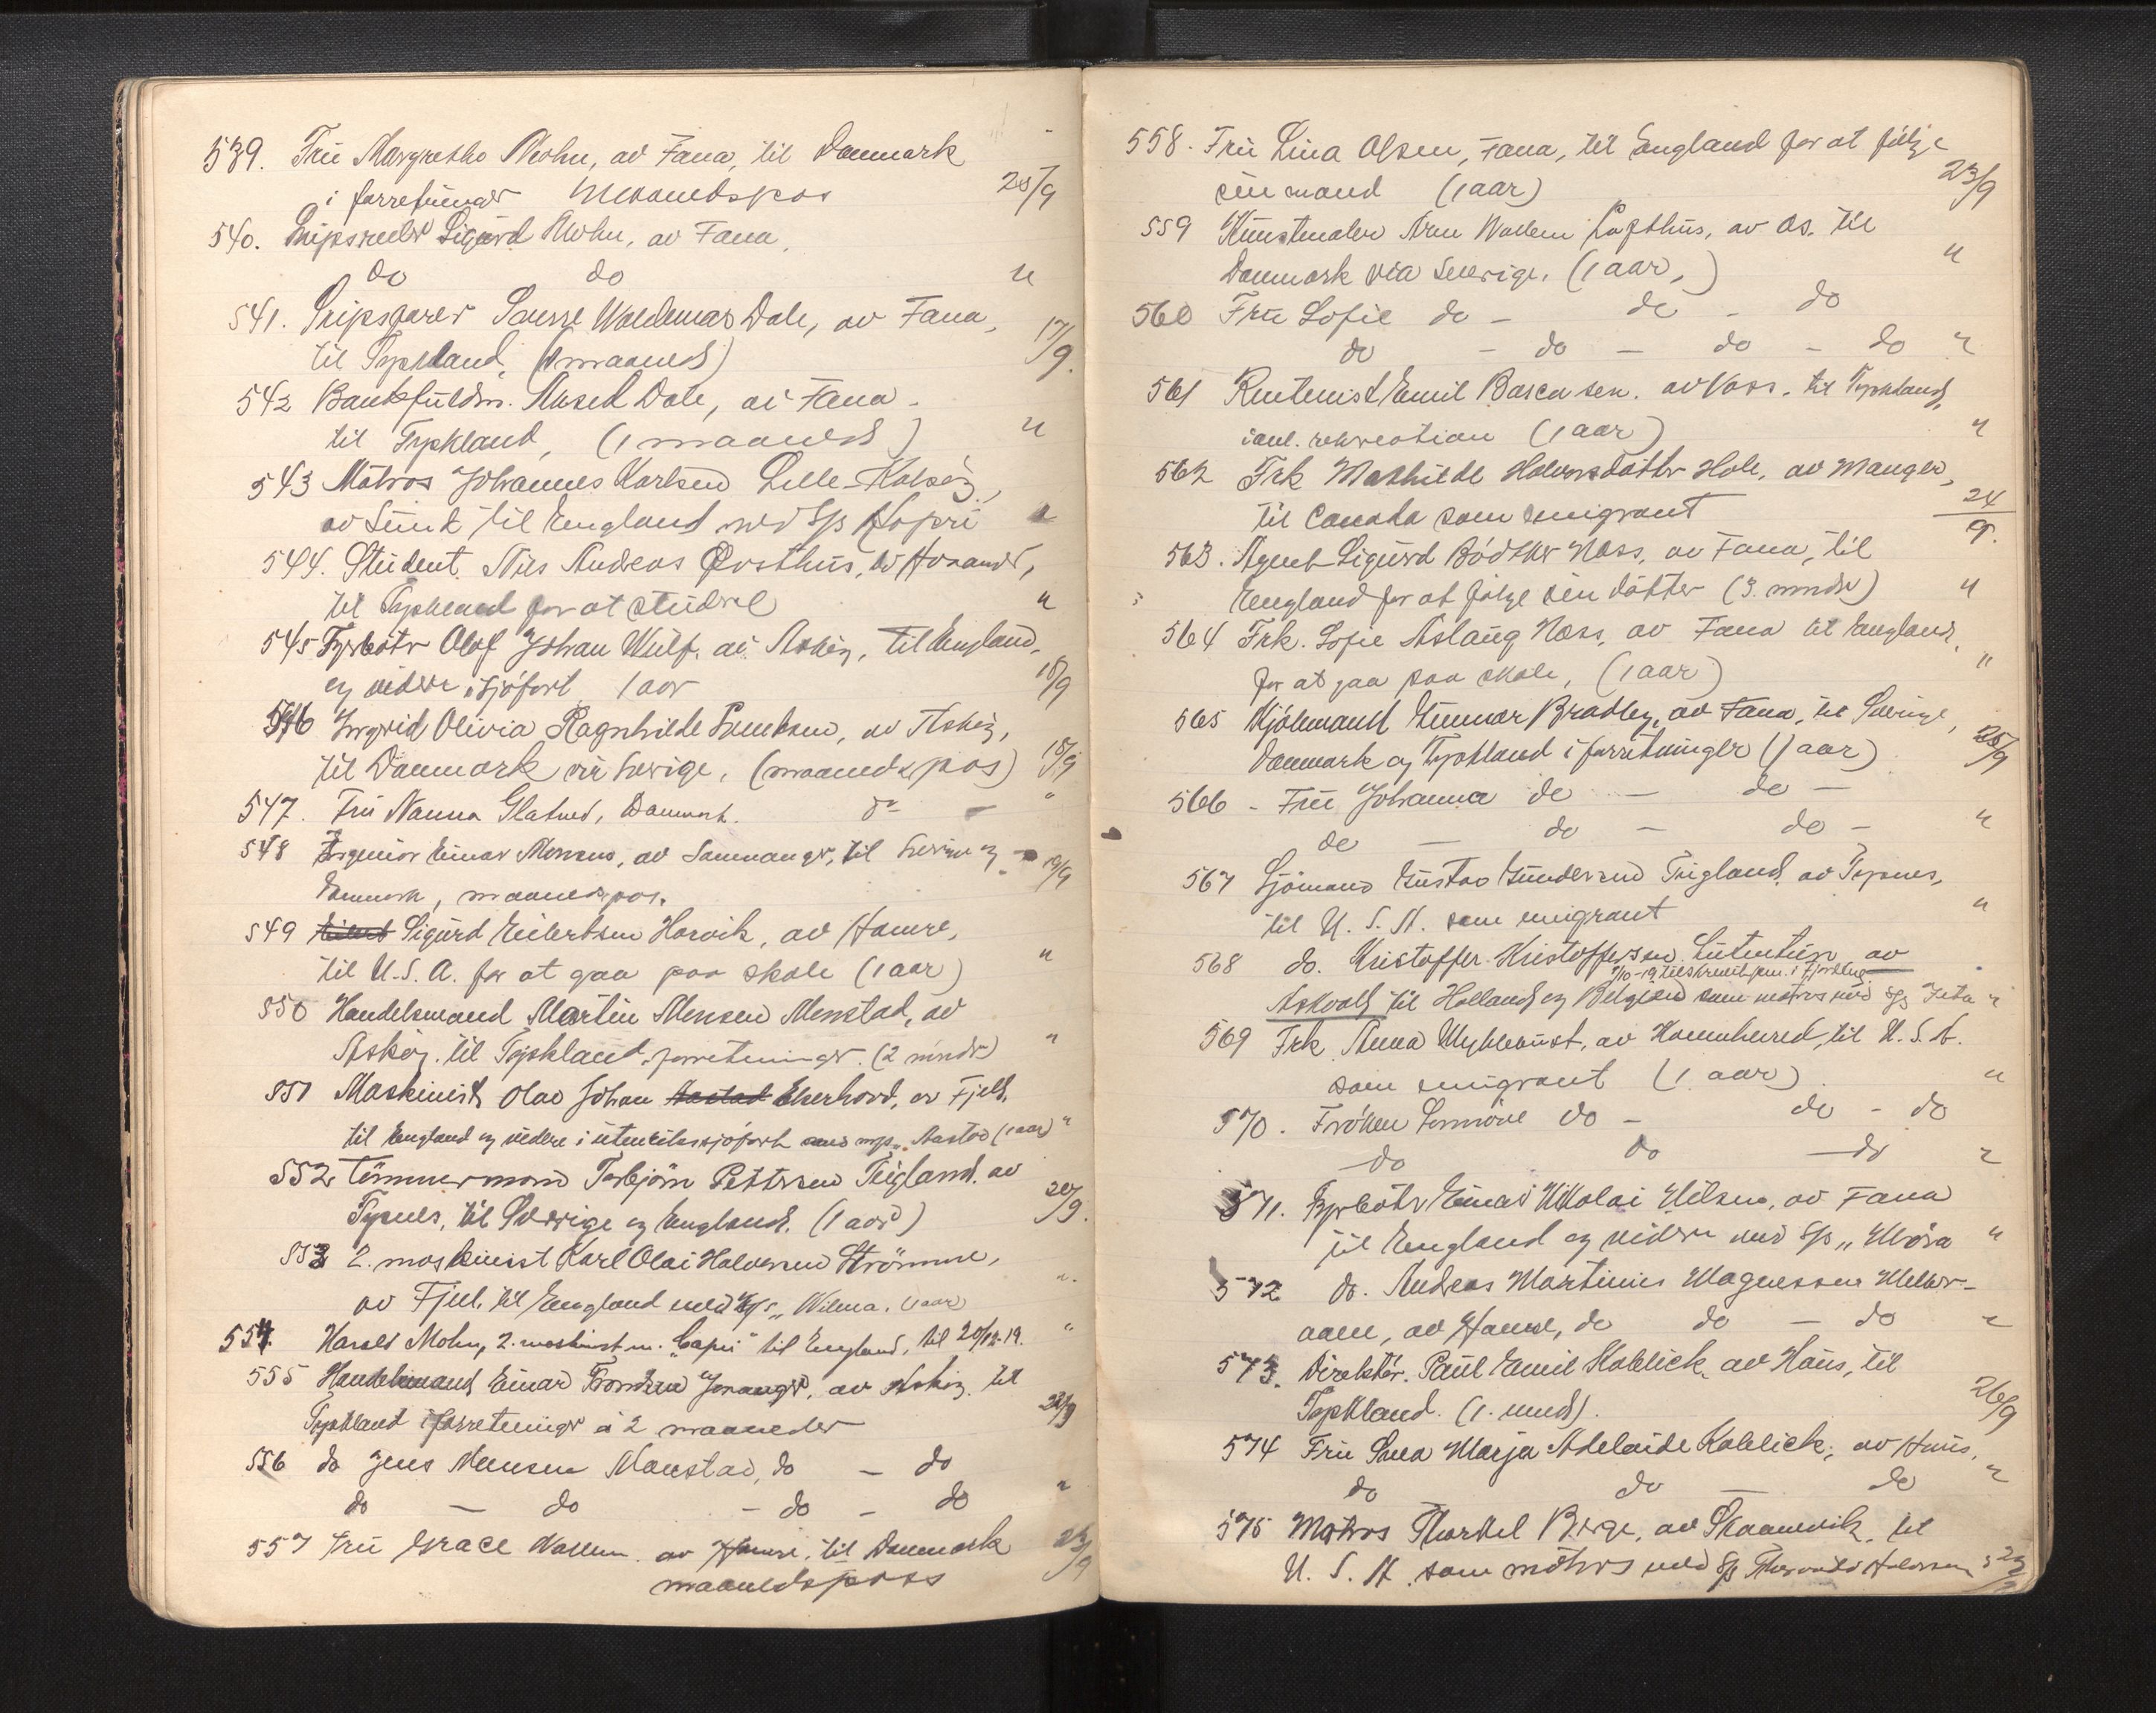 539. Frü Margrethe Mohn, av Fana, til Danmark
i forretninger Maanedspas 25/9
540. Skipsreder Sigurd Mohn, av Fana,
do do "
541. Skipsfører Valdemar Dale, av Fana, 17/9.
til Tyskland, (1 maaned)
542 Bankfuldm. Aksel Dale, av Fana
til Tyskland, (1 maaned) "
543 Matros Johannes Karlsen Lille-Kalsøy,
av Sund til England med S/s Kapri "
544. Student Nils Andreas Ørsthus, av Hosanger,
til Tyskland for at studere "
545 Fyrbøter Olof Johan Wulf, av Askøy, til England,
og videre i sjøfart 1 aar 18/9
546 Ingrid Olivia Ragnhilde, av Askøy,
til Danmark via Sverige, (maanedspas) 18/9
547. Frü Nanna, Danmark. do - "
548 Ingeniør Einar Monsen, av Samnanger, til Sverige og 19/9
Danmark, maanedspas.
549 Eilert Sigurd Eilertsen Horvik, av Hamre,
til U.S.A. for at gaa paa skole (1 aar) "
550 Handelsmand Martin Monsen Monstad, av
Askøy. til Tyskland. forretninger. (2 mndr) "
551 Maskinist Olav Johan Aastad Ekerhovd, av Fjeld,
til England og videre i utenriks sjøfart med m/s "Aastad (1 aar) "
552 Tømmermand Torbjørn Pettersen Teigland. av
Tysnes, til Sverige og England. (1 aar) 20/9.
553 2. maskinist Karl Olai Halvorsen Strømme,
av Fjell, til England med S/s "Wilma. (1 aar) "
554. Harald Mohn, 2. maskinist m. "Capri" til England, til 20/12-19. "
555 Handelsmand Einar Tronsen, av Askøy. til
Tyskland i forretninger à 2 maaneder 22/9
556 do Jens Monsen Monstad, do - do
do - do - do - do "
557 Frü Grace Wallem. av Hamre, til Danmark 23/9
maanedspass
558. Frü Lina Olsen, Fana, til England for at følge
sin mand (1 aar) 23/9
559 Kunstmaler Wallem Lofthus, av Os. til
Danmark via Sverige, (1 aar,) "
560 Frü Sofie do - do - do
do - do - do - do "
561 Rentenist Emil sen. av Voss. til Tyskland,
rekreation (1 aar) "
562 Frk Mathilde Halvorsdatter Hole, av Manger,
til Canada som emigrant 24/9.
563. Agent Sigurd Bødtker Næss, av Fana, til
England for at følge sin datter (3. mndr) "
564 Frk. Sofie Aslaug Næss, av Fana til England,
for at gaa paa skole, (1 aar) "
565 Kjøbmand Gunnar Bradley, av Fana, til Sverige, 25/9
Danmark og Tyskland i forretninger (1 aar)
566 - Frü Johanna do - do -
do - do - do - "
567 Sjømand Gustav Gundersen Teigland, av Tysnes,
til U. S. A. som emigrant "
568 do. Kristoffer Kristoffersen av
Askvoll til Holland og Belgien som matros med S/s Juta "
569 Frk. Anna Myklebust, av Hammhered, til U. S. A.
som emigrant (1 aar) "
570. Frøken do - do - do
do do - do "
571. Fyrbøter Einar Nikolai Nilsen, av Fana
til England og videre med S/s "Mbra "
572 do. Andreas Martinius Magnussen
aam, av Hamre, do do - do "
573. Direktør. Paul Emil Koblick, av Haus, til
Tyskland. (1. mnd). 26/9
574 Frü Marja Adelaide Koblick, av Haus,
do do - do "
575 Matros Thorkel Berge, av Skaanevik, til
U. S. A. som matros med S/s Thorvald Halvorsen